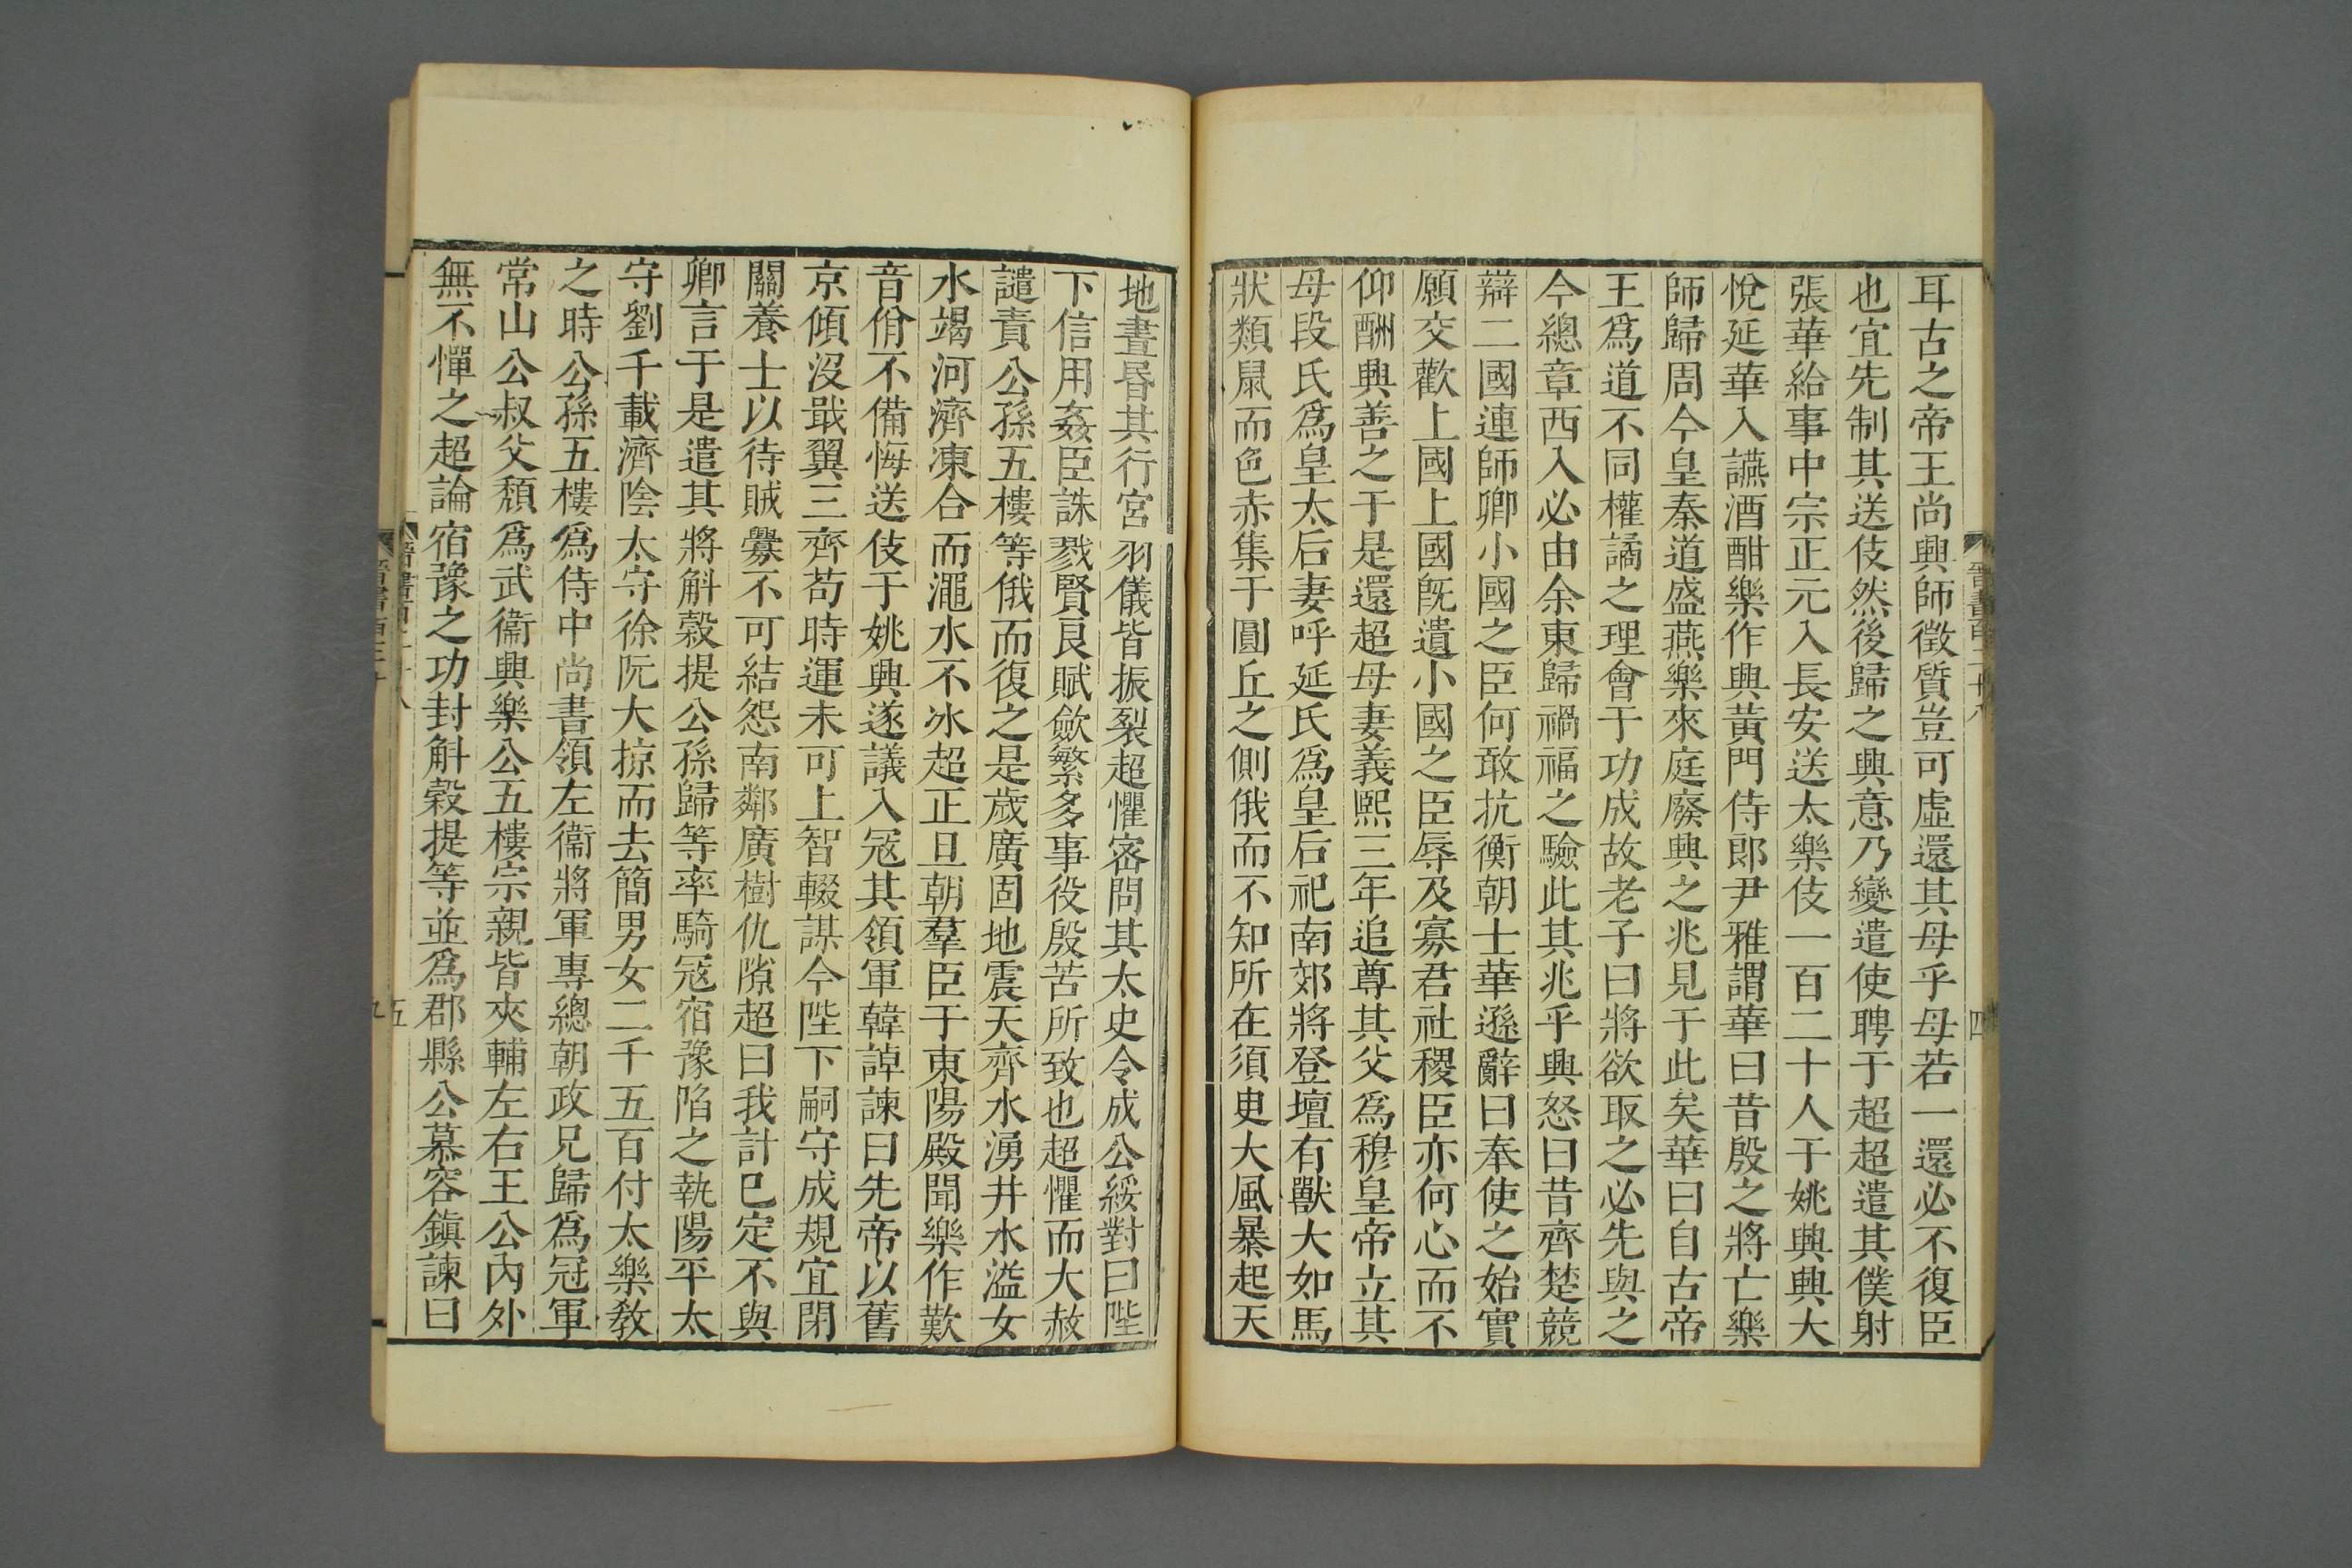 耳古之帝王尚興師徵質豈可虛還其母乎母若一還必不復臣
也宜先制其送伎然後歸之興意乃變遣使聘于超超遣其僕射
張華給事中宗正元入長安送太樂伎一百二十人于姚興興大
悅延華入讌酒酣樂作興黃門侍郎尹雅謂華曰昔殷之將亡樂
師歸周今皇秦道盛燕樂來庭廢興之兆見于此矣華曰自古帝
王爲道不同權譎之理會于功成故老子曰將欲取之必先與之
今總章西入必由余東歸禍福之驗此其兆乎興怒曰昔齊楚競
辯二國連師卿小國之臣何敢抗衡朝士華遜辭曰奉使之始實
願交歡上國上國旣遺小國之臣辱及寡君社稷臣亦何心而不
仰酬興善之于是還超母妻義熙三年追尊其父爲穆皇帝立其
母段氏爲皇太后妻呼延氏爲皇后祀南郊將登壇有獸大如馬
狀類鼠而色赤集于圓丘之側俄而不知所在須臾大風暴起天
地晝昏其行宮羽儀皆振裂超懼密問其太史令成公綏對曰陛
下信用姦臣誅戮賢良賦歛繁多事役殷苦所致也超懼而大赦
譴責公孫五樓等俄而復之是歲廣固地震天齊水湧井水溢女
水竭河濟凍合而澠水不冰超正旦朝羣臣于東陽殿聞樂作歎
音佾不備悔送伎于姚興遂議入寇其領軍韓𧨳諫曰先帝以舊
京傾沒戢翼三齊苟時運未可上智輟謀今陛下嗣守成規宜閉
關養士以待賊釁不可結怨南鄰廣樹仇隙超曰我計已定不與
卿言于是遣其將斛穀提公孫歸等率騎寇宿豫陷之執陽平太
守劉千載濟陰太守徐阮大掠而去簡男女二千五百付太樂敎
之時公孫五樓爲侍中尚書領左衞將軍專總朝政兄歸爲冠軍
常山公叔父頹爲武衞興樂公五樓宗親皆夾輔左右王公內外
無不憚之超論宿豫之功封斛穀提等並爲郡縣公慕容鎭諫曰
晉書百二十八
四
五